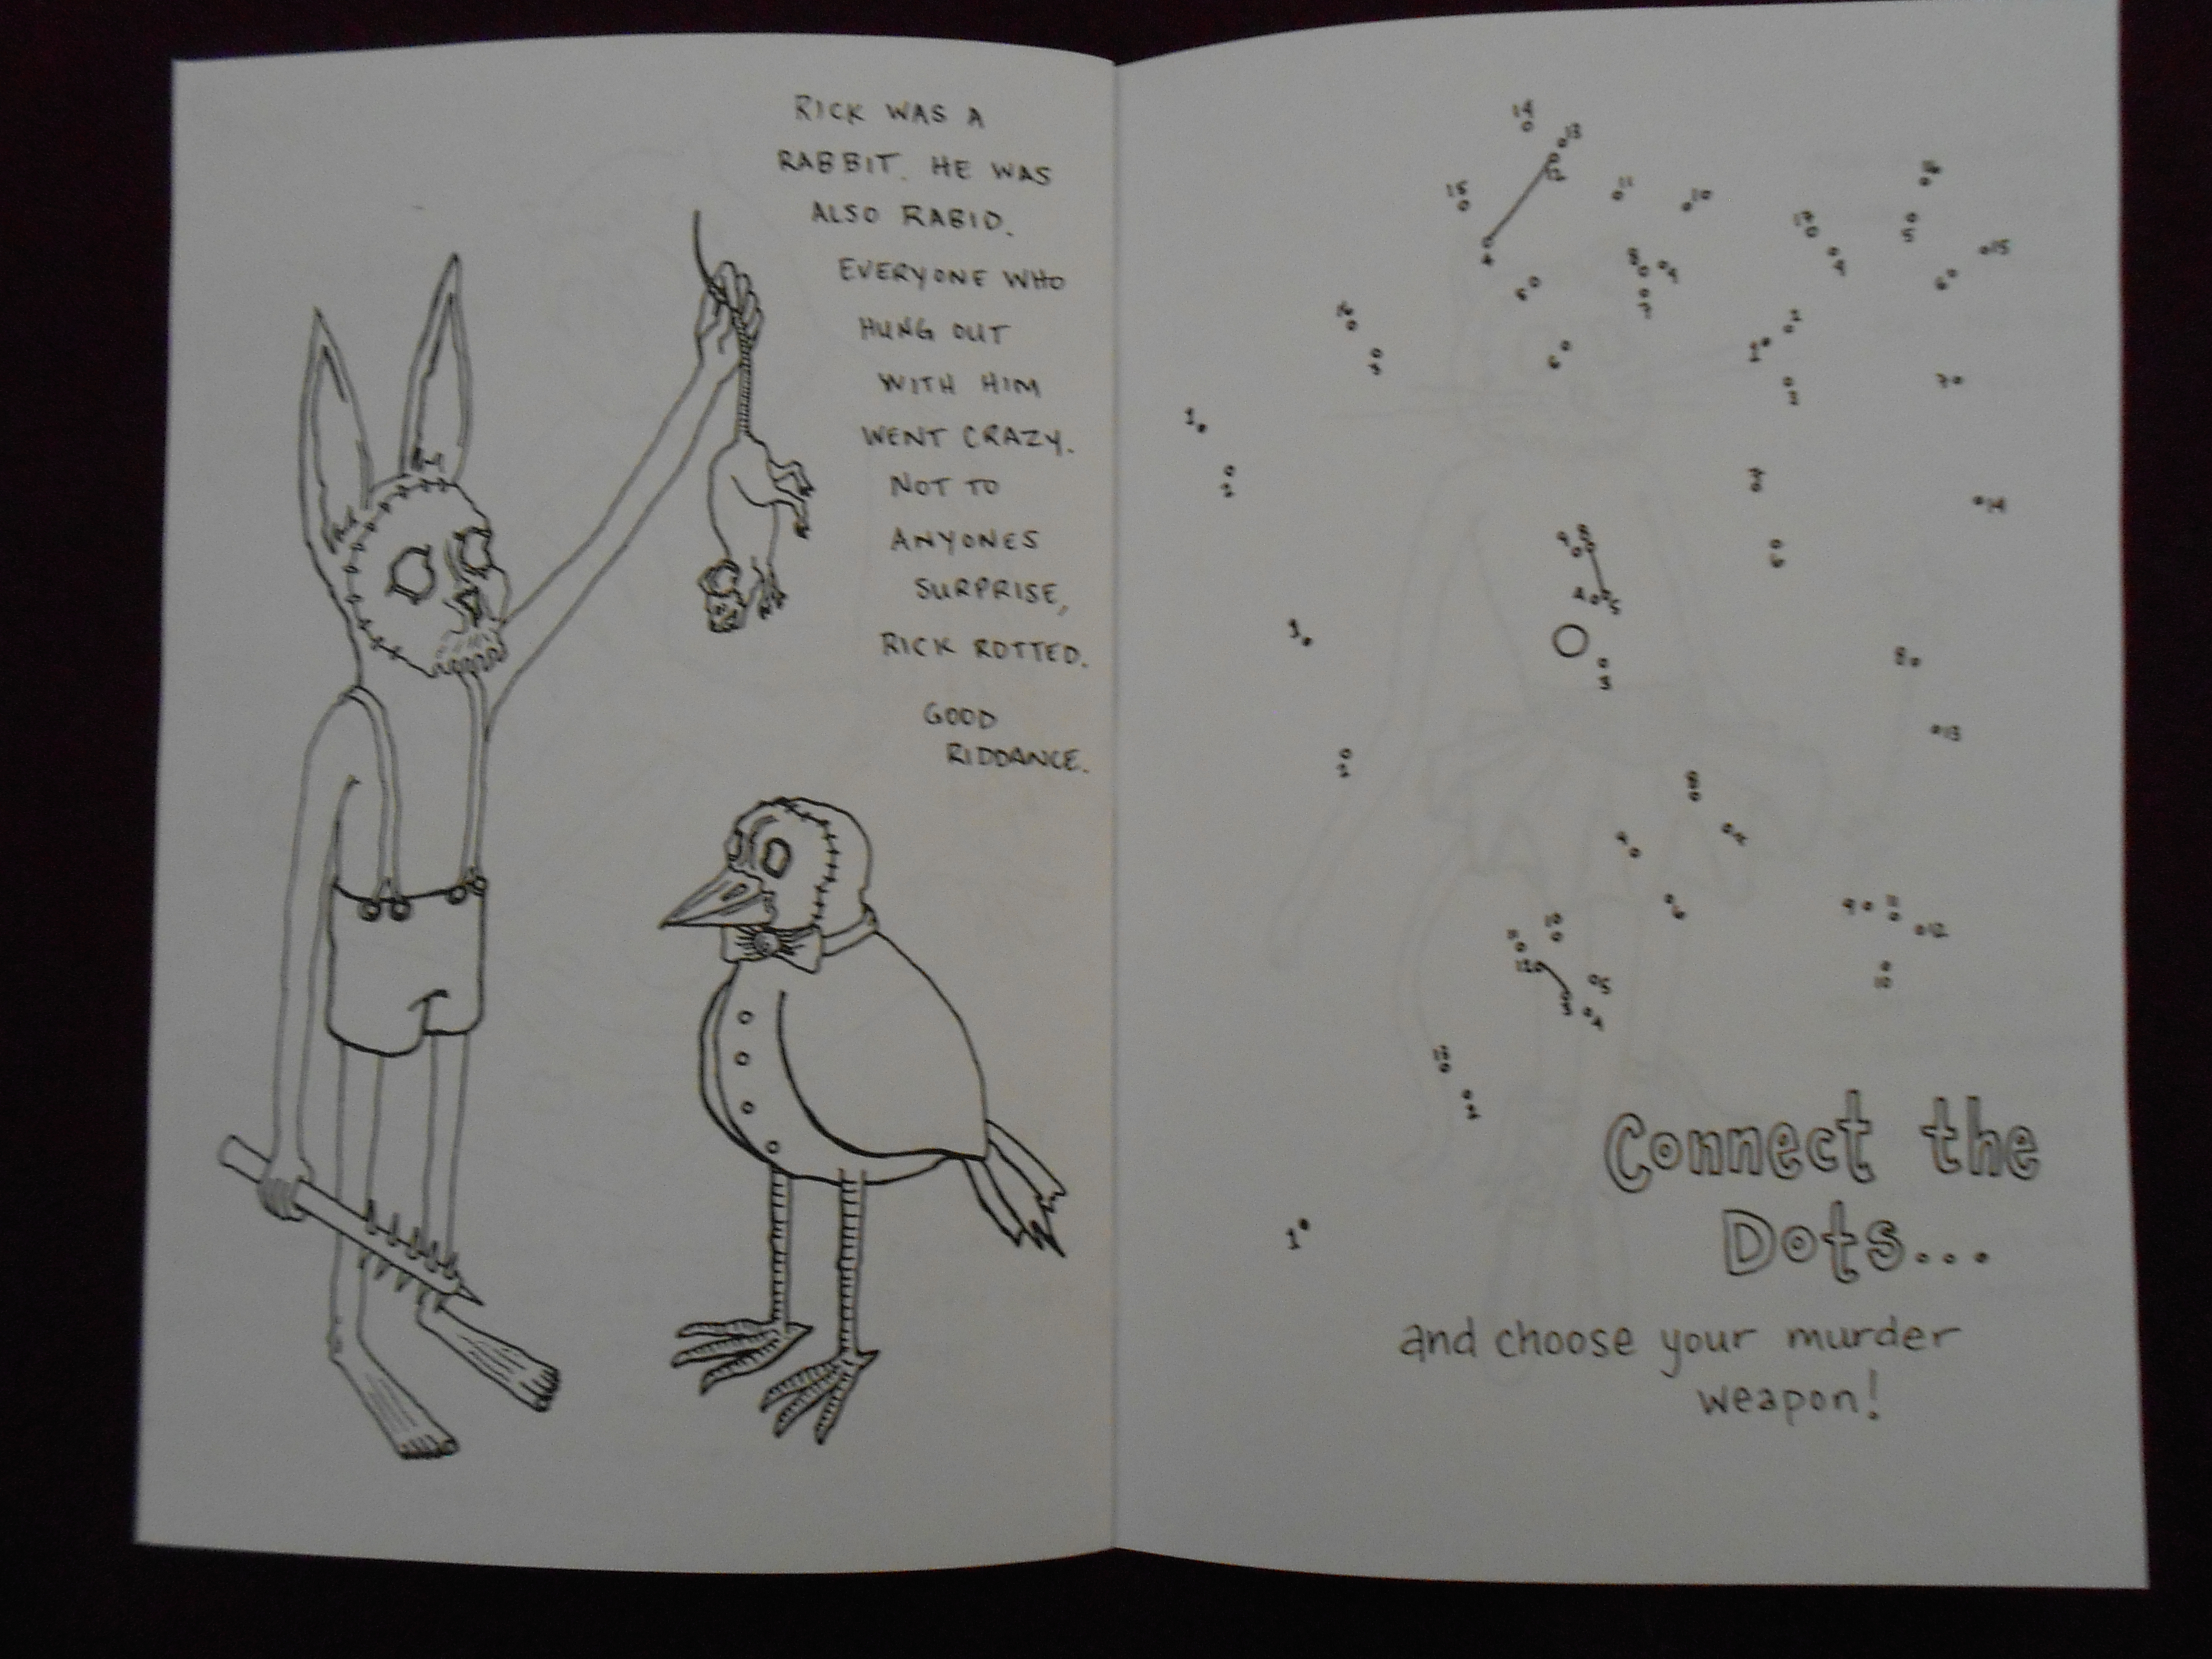 RICK WAS A
RABBIT. HE WAS
ALSO RABID.
EVERYONE WHO
HUNG OUT
WITH HIM
WENT CRAZY.
NOT TO
ANYONES
SURPRISE,
RICK ROTTED.
GOOD
RIDDANCE.
Connect the
Dots...
and choose your murder
weapon!